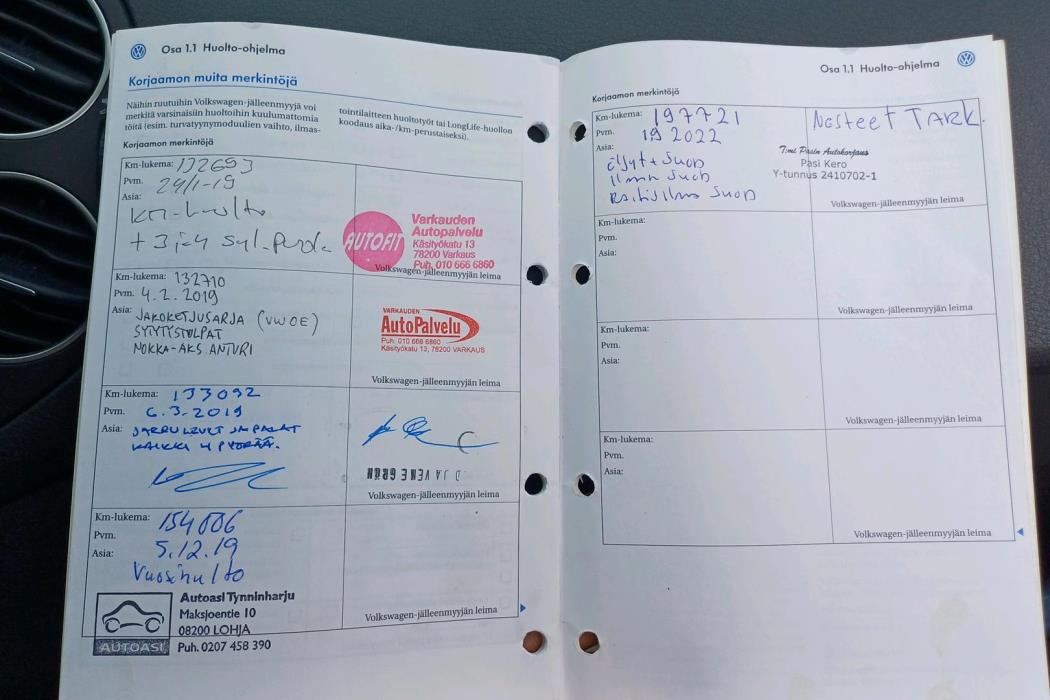 Osa 1.1 Huolto-ohjelma
Korjaamon muita merkintöjä
Näihin ruutuihin Volkswagen-jälleenmyyjä voi
merkitä varsinaisiin huoltoihin kuulumattomia
töitä (esim. turvatyynymoduulien vaihto, ilmas-
tointilaitteen huoltotyöt tai LongLife-huollon
koodaus aika-/km-perustaiseksi).
Korjaamon merkintöjä
Km-lukema: 132693
Pvm. 29/1-19
Asia:
km-huolto
+ 3 ja 4 syl.
AUTOFIT
Varkauden
Autopalvelu
Käsityökatu 13
78200 Varkaus
Puh. 010 666 6860
Volkswagen-jälleenmyyjän leima
Km-lukema: 132710
Pvm. 4.2.2019
Asia: JAKOKETJUSARJA (VW OE)
SYTYTYSTULPAT
NOKKA-AKS.ANTURI
VARKAUDEN
AutoPalvelu
Puh. 010 666 6860
Käsityökatu 13, 78200 VARKAUS
Volkswagen-jälleenmyyjän leima
Km-lukema: 133092
Pvm. 6.3.2019
Asia: JARRULEVYT JA PALAT
KAIKKI 4 PYÖRÄÄ.
Volkswagen-jälleenmyyjän leima
Km-lukema: 154006
Pvm. 5.12.19
Asia:
Vuosihuolto
AUTOASI
Autoasi Tynninharju
Maksjoentie 10
08200 LOHJA
Puh. 0207 458 390
Volkswagen-jälleenmyyjän leima
Osa 1.1 Huolto-ohjelma
Korjaamon merkintöjä
Km-lukema: 197721
Pvm. 19 2022
Asia:
öljyt + Suod
ilman Suod
Raitisilma Suod
Nesteet TARK.
Timi Pasin Autokorjaus
Pasi Kero
Y-tunnus 2410702-1
Volkswagen-jälleenmyyjän leima
Km-lukema:
Pvm.
Asia:
Volkswagen-jälleenmyyjän leima
Km-lukema:
Pvm.
Asia:
Volkswagen-jälleenmyyjän leima
Km-lukema:
Pvm.
Asia:
Volkswagen-jälleenmyyjän leima